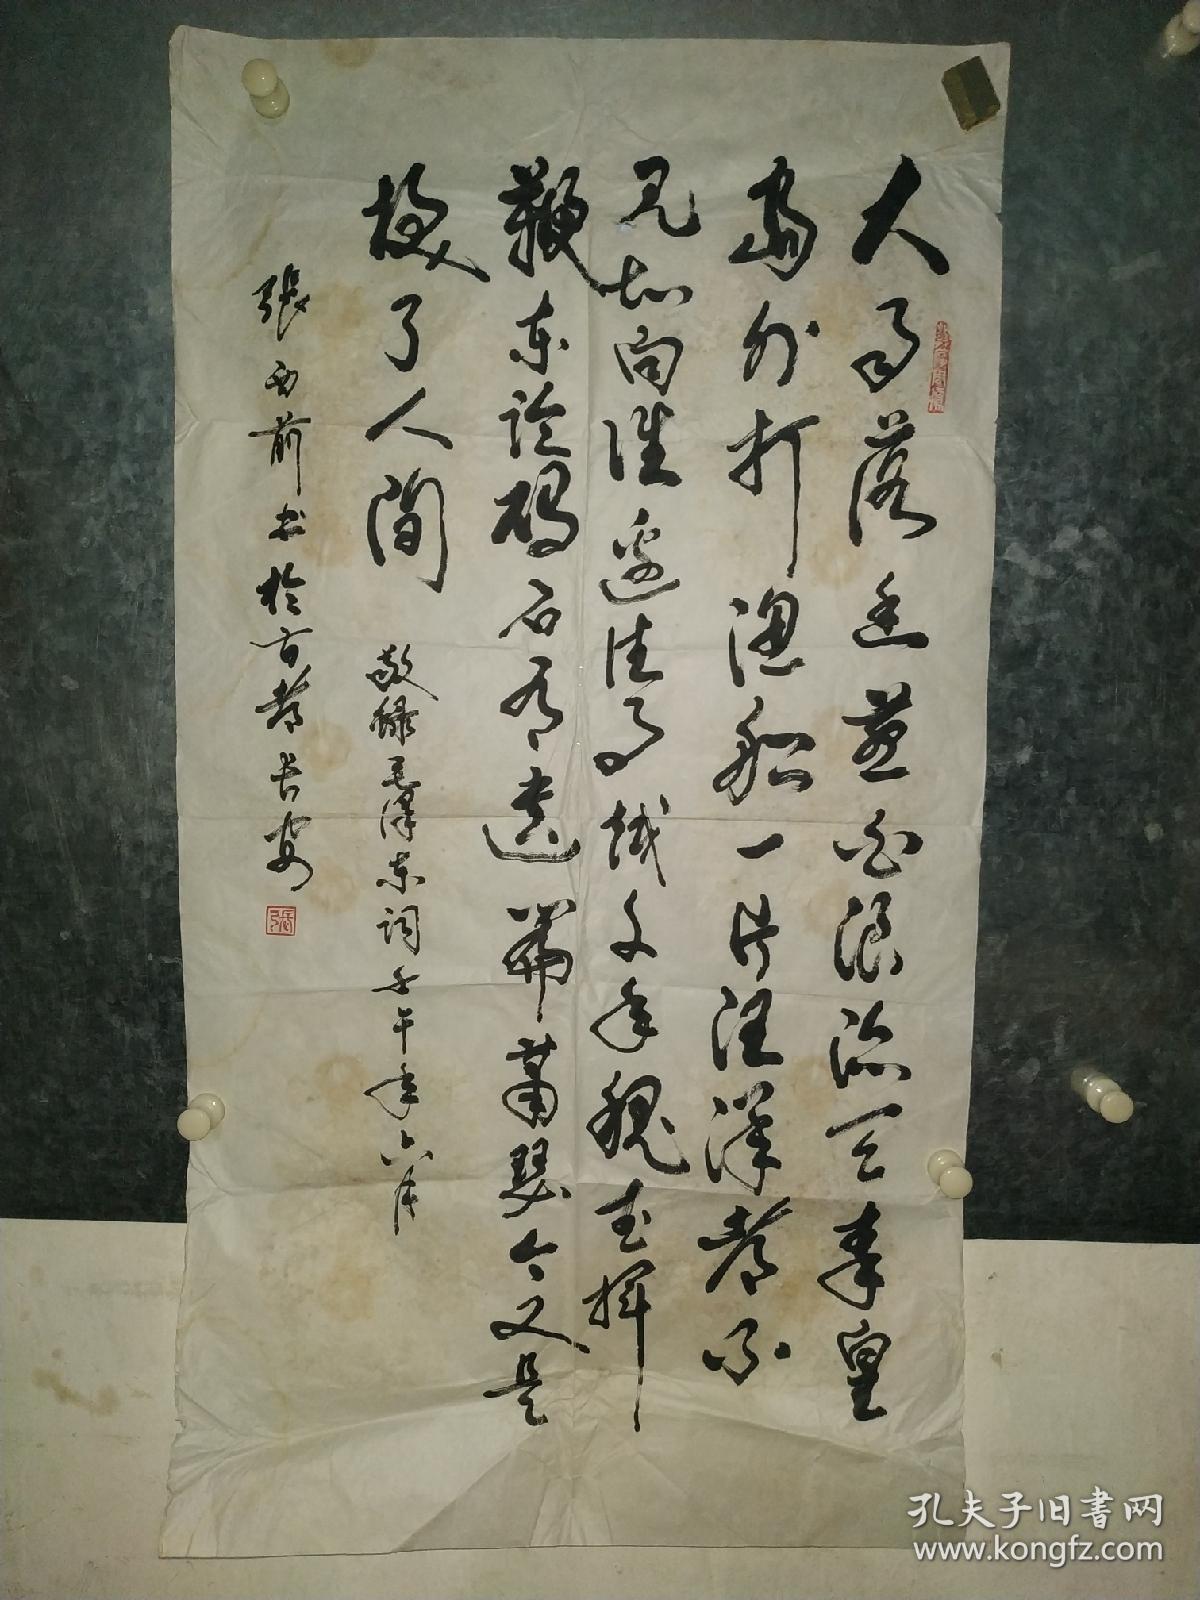 大雨落幽燕白浪滔天秦皇
岛外打渔船一片汪洋都不
见知向谁边往事越千年魏武挥
鞭东临碣石有遗篇萧瑟今又是
换了人间
敬录毛泽东词壬午年六月
張西前书於古都长安
張
孔夫子旧书网
www.kongfz.com